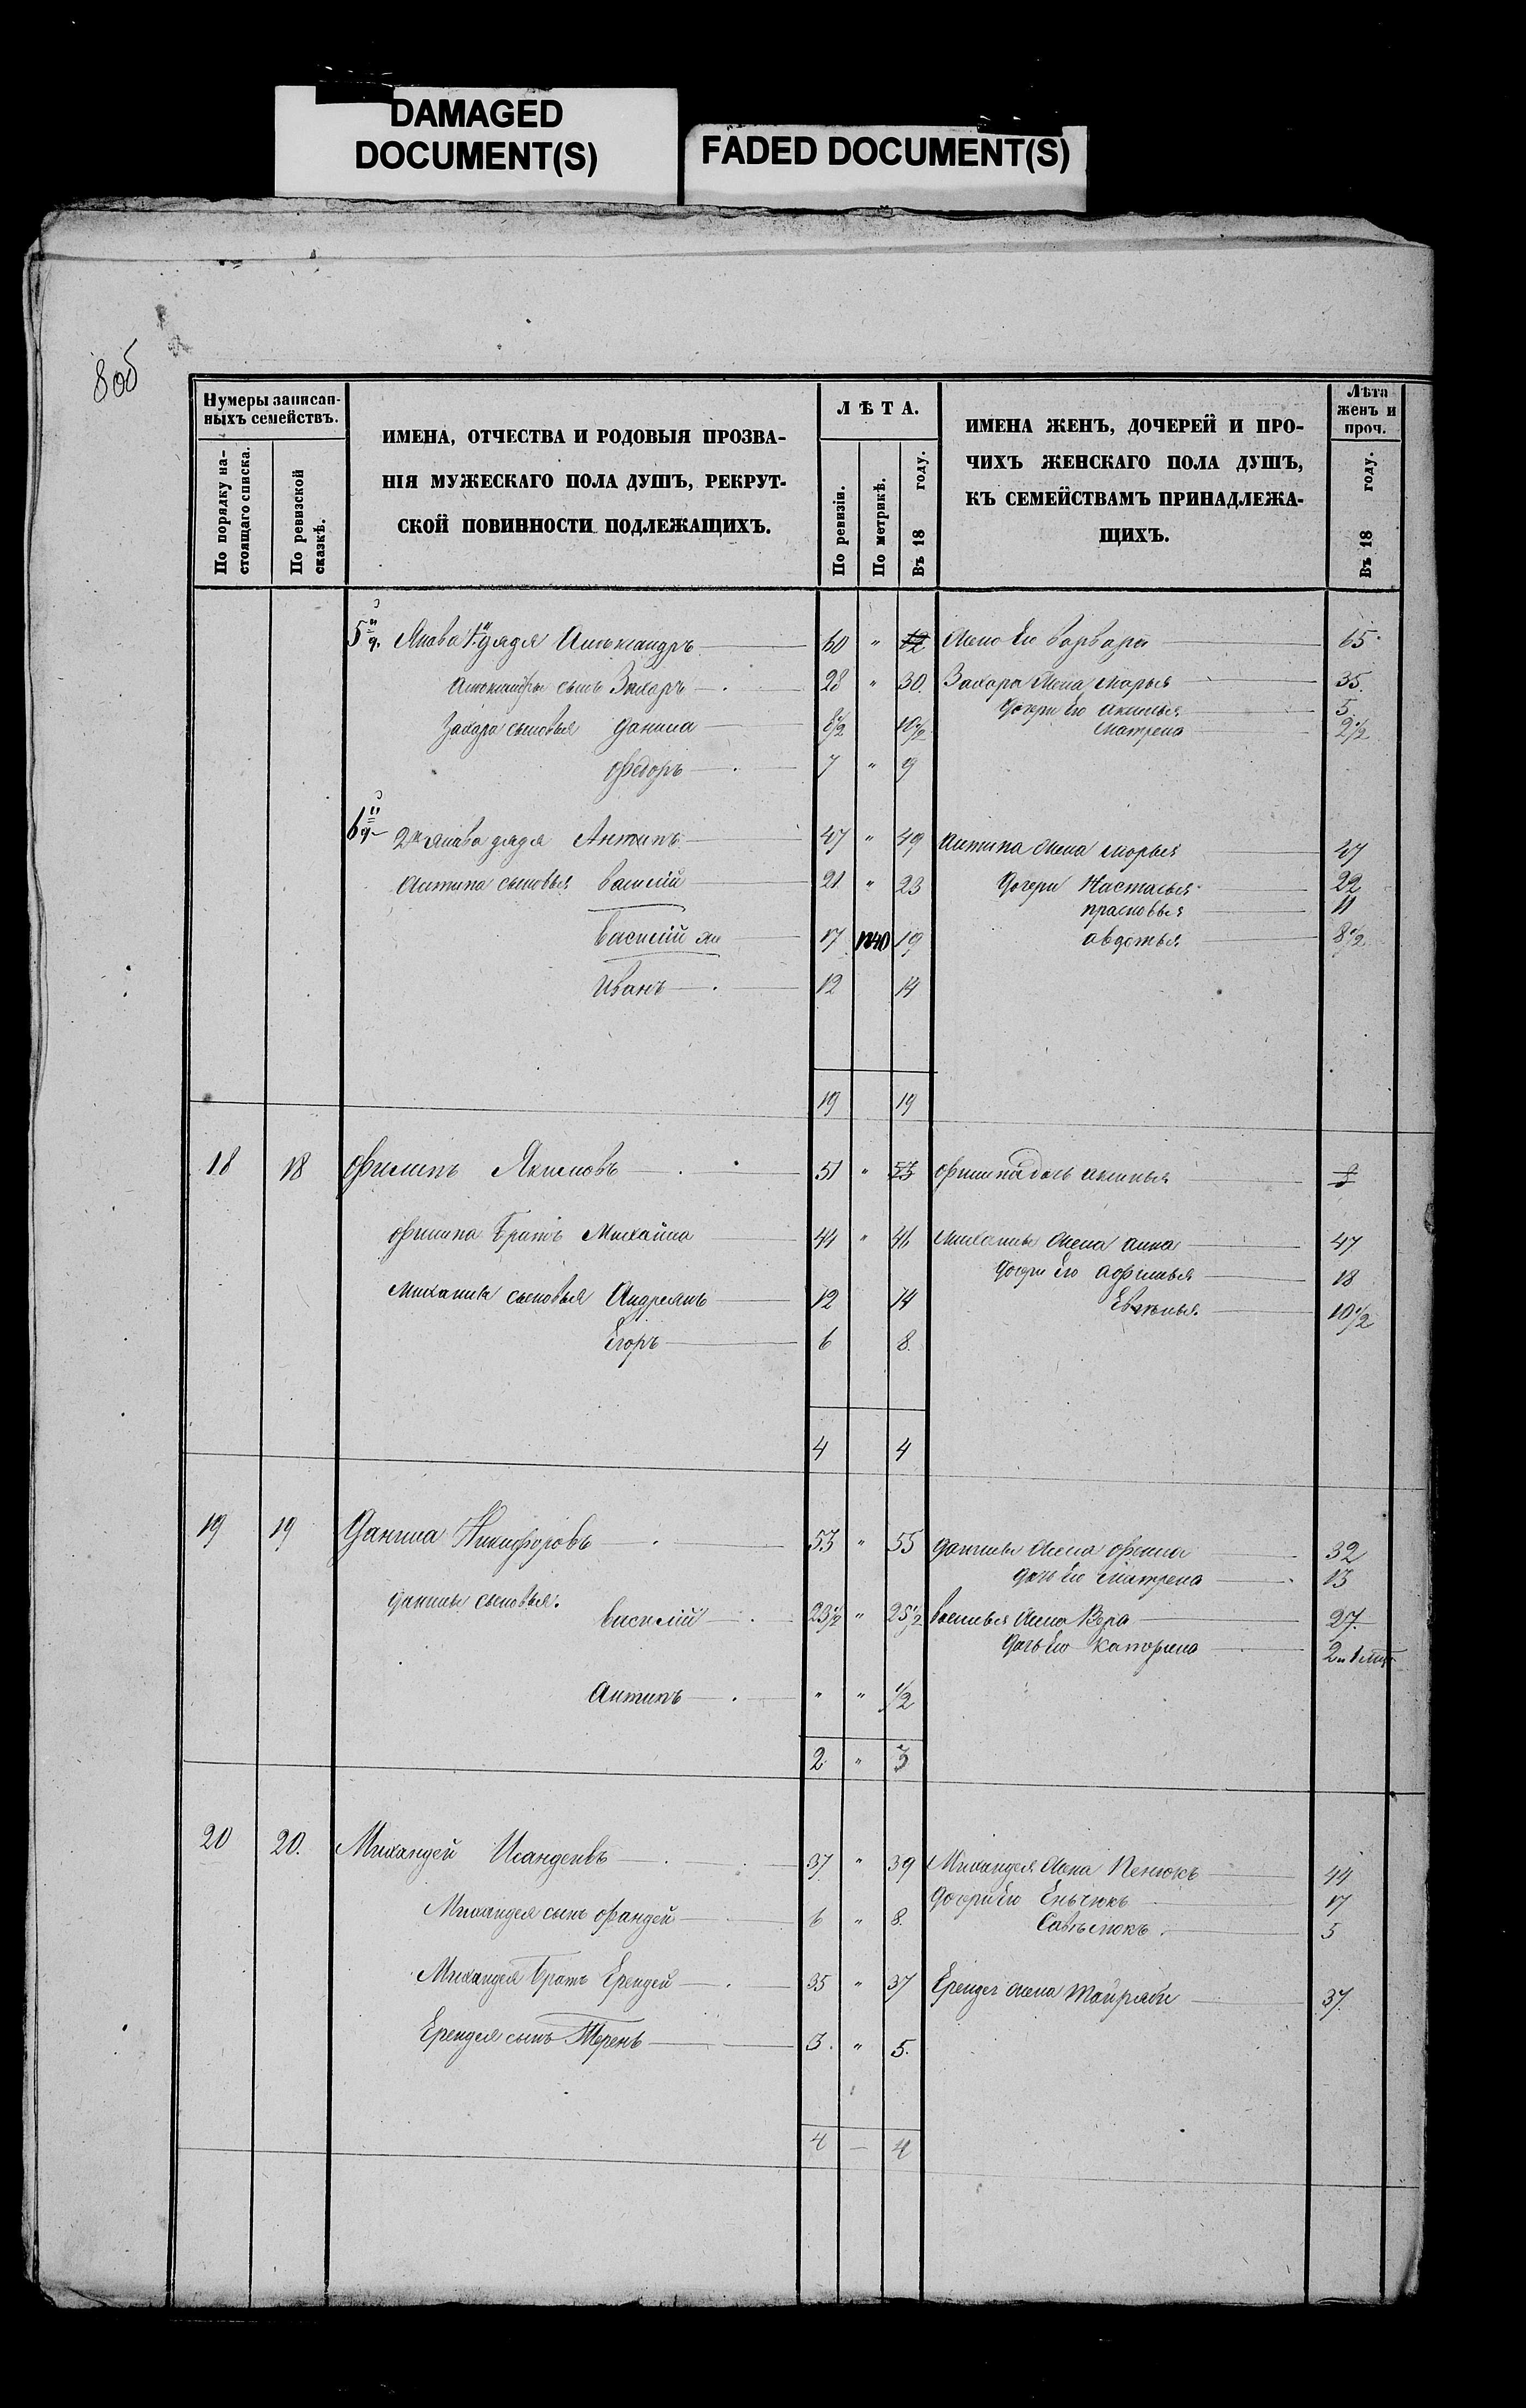 DAMAGED
DOCUMENT(S)
FADED DOCUMENT(S)
8об
Нумеры записан-
ныхъ семействъ.
По порядку на-
стоящаго списка.
По ревизской
сказкѣ.
ИМЕНА, ОТЧЕСТВА И РОДОВЫЯ ПРОЗВА-
НІЯ МУЖЕСКАГО ПОЛА ДУШЪ, РЕКРУТ-
СКОЙ ПОВИННОСТИ ПОДЛЕЖАЩИХЪ.
ЛѢТА.
По ревизіи.
По метрикѣ.
Въ 18 году.
ИМЕНА ЖЕНЪ, ДОЧЕРЕЙ И ПРО-
ЧИХЪ ЖЕНСКАГО ПОЛА ДУШЪ,
КЪ СЕМЕЙСТВАМЪ ПРИНАДЛЕЖА-
ЩИХЪ.
Лѣта
женъ и
проч.
Въ 18 году.
Якова 1й дядя Александръ 60 " 62 жена его варвара 65
Александра сынъ Захаръ 28 " 30. Захара жена марья 35.
дочери его акилина 5
Захара сыновья данила 8½ 10½ матрена 2½
Федоръ 7 " 9
2й Якова дядя Антипъ 47 " 49 антипа жена марья 47
Антипа сыновья василій 21 " 23 дочери Настасья 22
прасковья 11
василій 17 1840 19 авдотья 8½
Иванъ 12 14
19 19
18 18 Филипъ Якимовъ 51 " 53 филипа дочь
филипа братъ Михайла 44 " 46 михаилы жена анна 47
дочери его 18
михаила сыновья Андреянъ 12 14 Евгенья 10½
Егоръ 6 8.
4 4
19 19 Данила Никифоровъ 53 " 55 данилы жена 32
дочь его матрена 13
данилы сыновья:
василій 23½ " 25½ василья жена Вера 27.
дочь его катерина
Антипъ " " ½
2 " 3
20 20. Михандей 37 " 39 Михандея жена Пенюкъ 44
дочери его 17
Михандея сынъ фандей 6 " 8. 5
Михандея братъ Ерендей 35 " 37 Ерендея жена 37.
Ерендея сынъ 3. " 5.
4 — 4